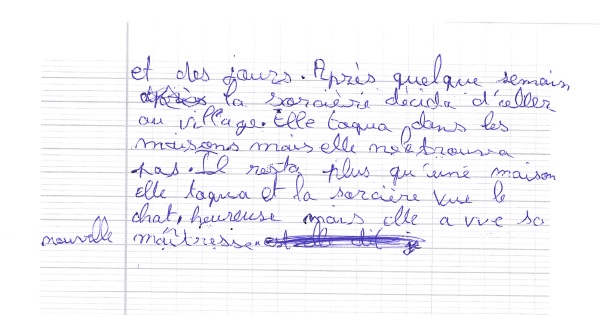 et des jours. Après quelque semain,
après la sorcière décida d'aller
au village. Elle toqua dans les
maisons mais elle ne trouva
pas. Il resta plus qu'une maison
elle toqua et la sorcière vue le
chat, heureuse mais elle a vue sa
nouvelle maîtresse. est elle dit je